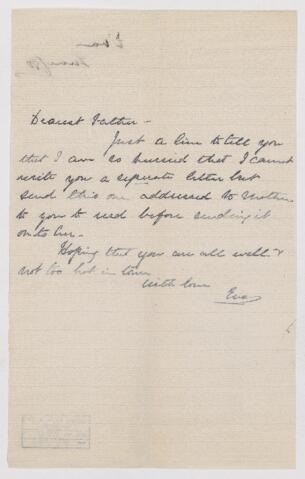 Dearest Father -
Just a line to tell you
that I am so hurried that I cannot
write you a separate letter but
send this one addressed to Mother
to you to read before sending it
on to her.
Hoping that you are all well &
not too hot in town
With love
Eva